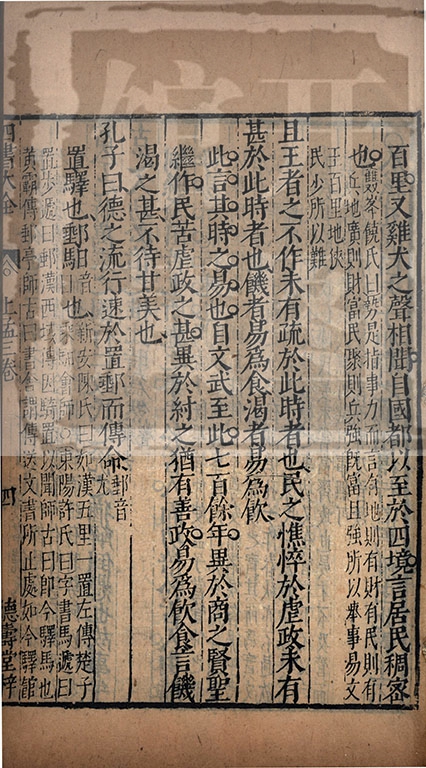 百里又雞犬之聲相聞自國都以至於四境言居民稠密
也雙峯饒氏曰勢是指事力而言有地則有財有民則有
兵地廣則財富民聚則兵強旣富且強所以舉事易文
王百里地俠
民少所以難
且王者之不作未有疏於此時者也民之憔悴於虐政未有
甚於此時者也饑者易爲食渴者易爲飲
此言其時之易也自文武至此七百餘年異於商之賢聖
繼作民苦虐政之甚異於紂之猶有善政易爲飲食言饑
渴之甚不待甘美也
孔子曰德之流行速於置郵而傳命郵音尤
置驛也郵馹也
馹音日新安陳氏曰如漢五里一置左傳楚子
乘馹會師○東陽許氏曰字書馬遞曰
置步遞曰郵漢西域傳因騎置以聞師古曰即今驛馬也
黃霸傳郵學師古曰書舍謂傳送文書所止處如今驛館
四書大全 上孟三卷 四 德壽堂梓